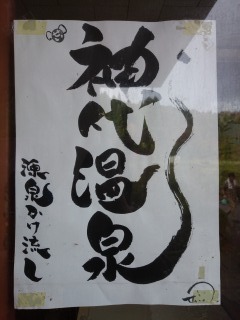 神代温泉
源泉かけ流し